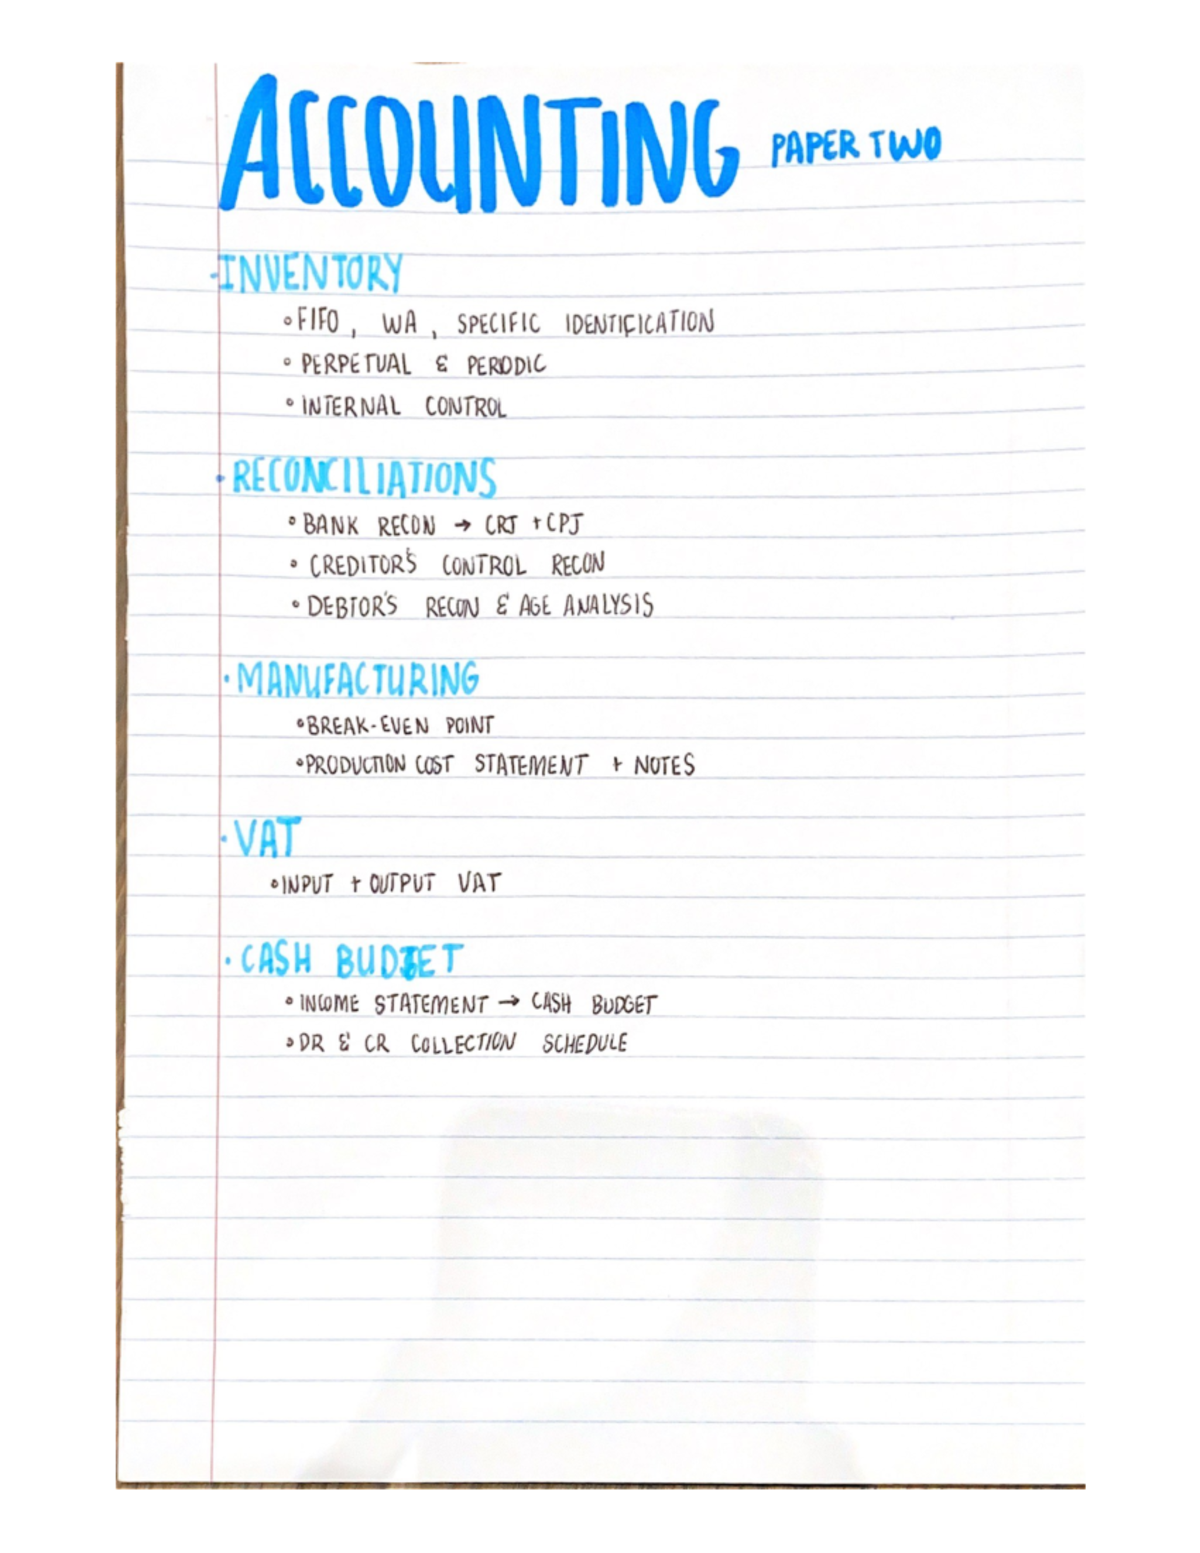 ACCOUNTING PAPER TWO
·INVENTORY
∘FIFO, WA, SPECIFIC IDENTIFICATION
∘PERPETUAL & PERIODIC
∘INTERNAL CONTROL
·RECONCILIATIONS
∘BANK RECON → CRJ + CPJ
∘CREDITOR'S CONTROL RECON
∘DEBTOR'S RECON & AGE ANALYSIS
·MANUFACTURING
∘BREAK-EVEN POINT
∘PRODUCTION COST STATEMENT + NOTES
·VAT
∘INPUT + OUTPUT VAT
·CASH BUDGET
∘INCOME STATEMENT → CASH BUDGET
∘DR & CR COLLECTION SCHEDULE